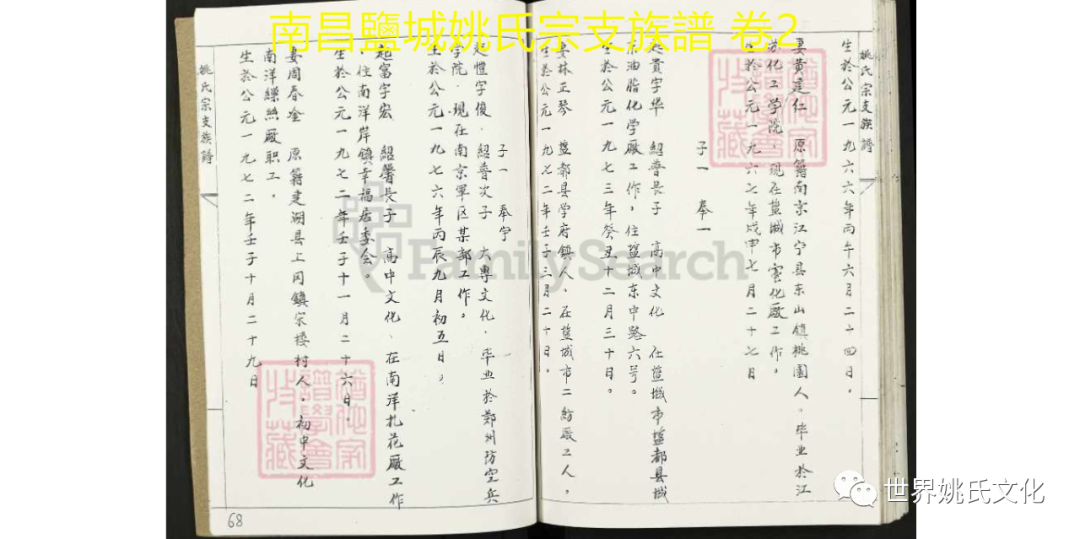 南昌鹽城姚氏宗支族譜 卷2
姚氏宗支族譜
生於公元一九六六年丙午六月二十四日。
妻黄建仁 原籍南京江宁县东山镇桃園人。毕业於江
苏化工学院 现在盐城市電化廠工作。
生於公元一九六七年戊申七月二十七日
子一 奉一
起貴字华 紹普長子 高中文化 任盐城市盐都县城
油脂化学廠工作，住盐城东中路六号。
生於公元一九七三年癸丑十二月三十日。
妻林正琴 盐都县学府镇人，在盐城市二紡廠工人，
生於公元一九七二年壬子三月二十日。
子一 奉宇
起愷字俊，紹普次子 大專文化，毕业於鄭州防空兵
学院，现在南京軍区某部工作。
生於公元一九七六年丙辰九月初五日。
起富字宏 紹譽長子 高中文化，在南洋扎花廠工作
，住南洋岸鎮幸福居委会
生於公元一九七二年壬子十一月二十六日。
妻周春金 原籍建湖县上冈鎮宋楼村人，初中文化
南洋繰絲廠职工，
生於公元一九七二年壬子十月二十九日
姚氏宗支族譜
68
FamilySearch
世界姚氏文化